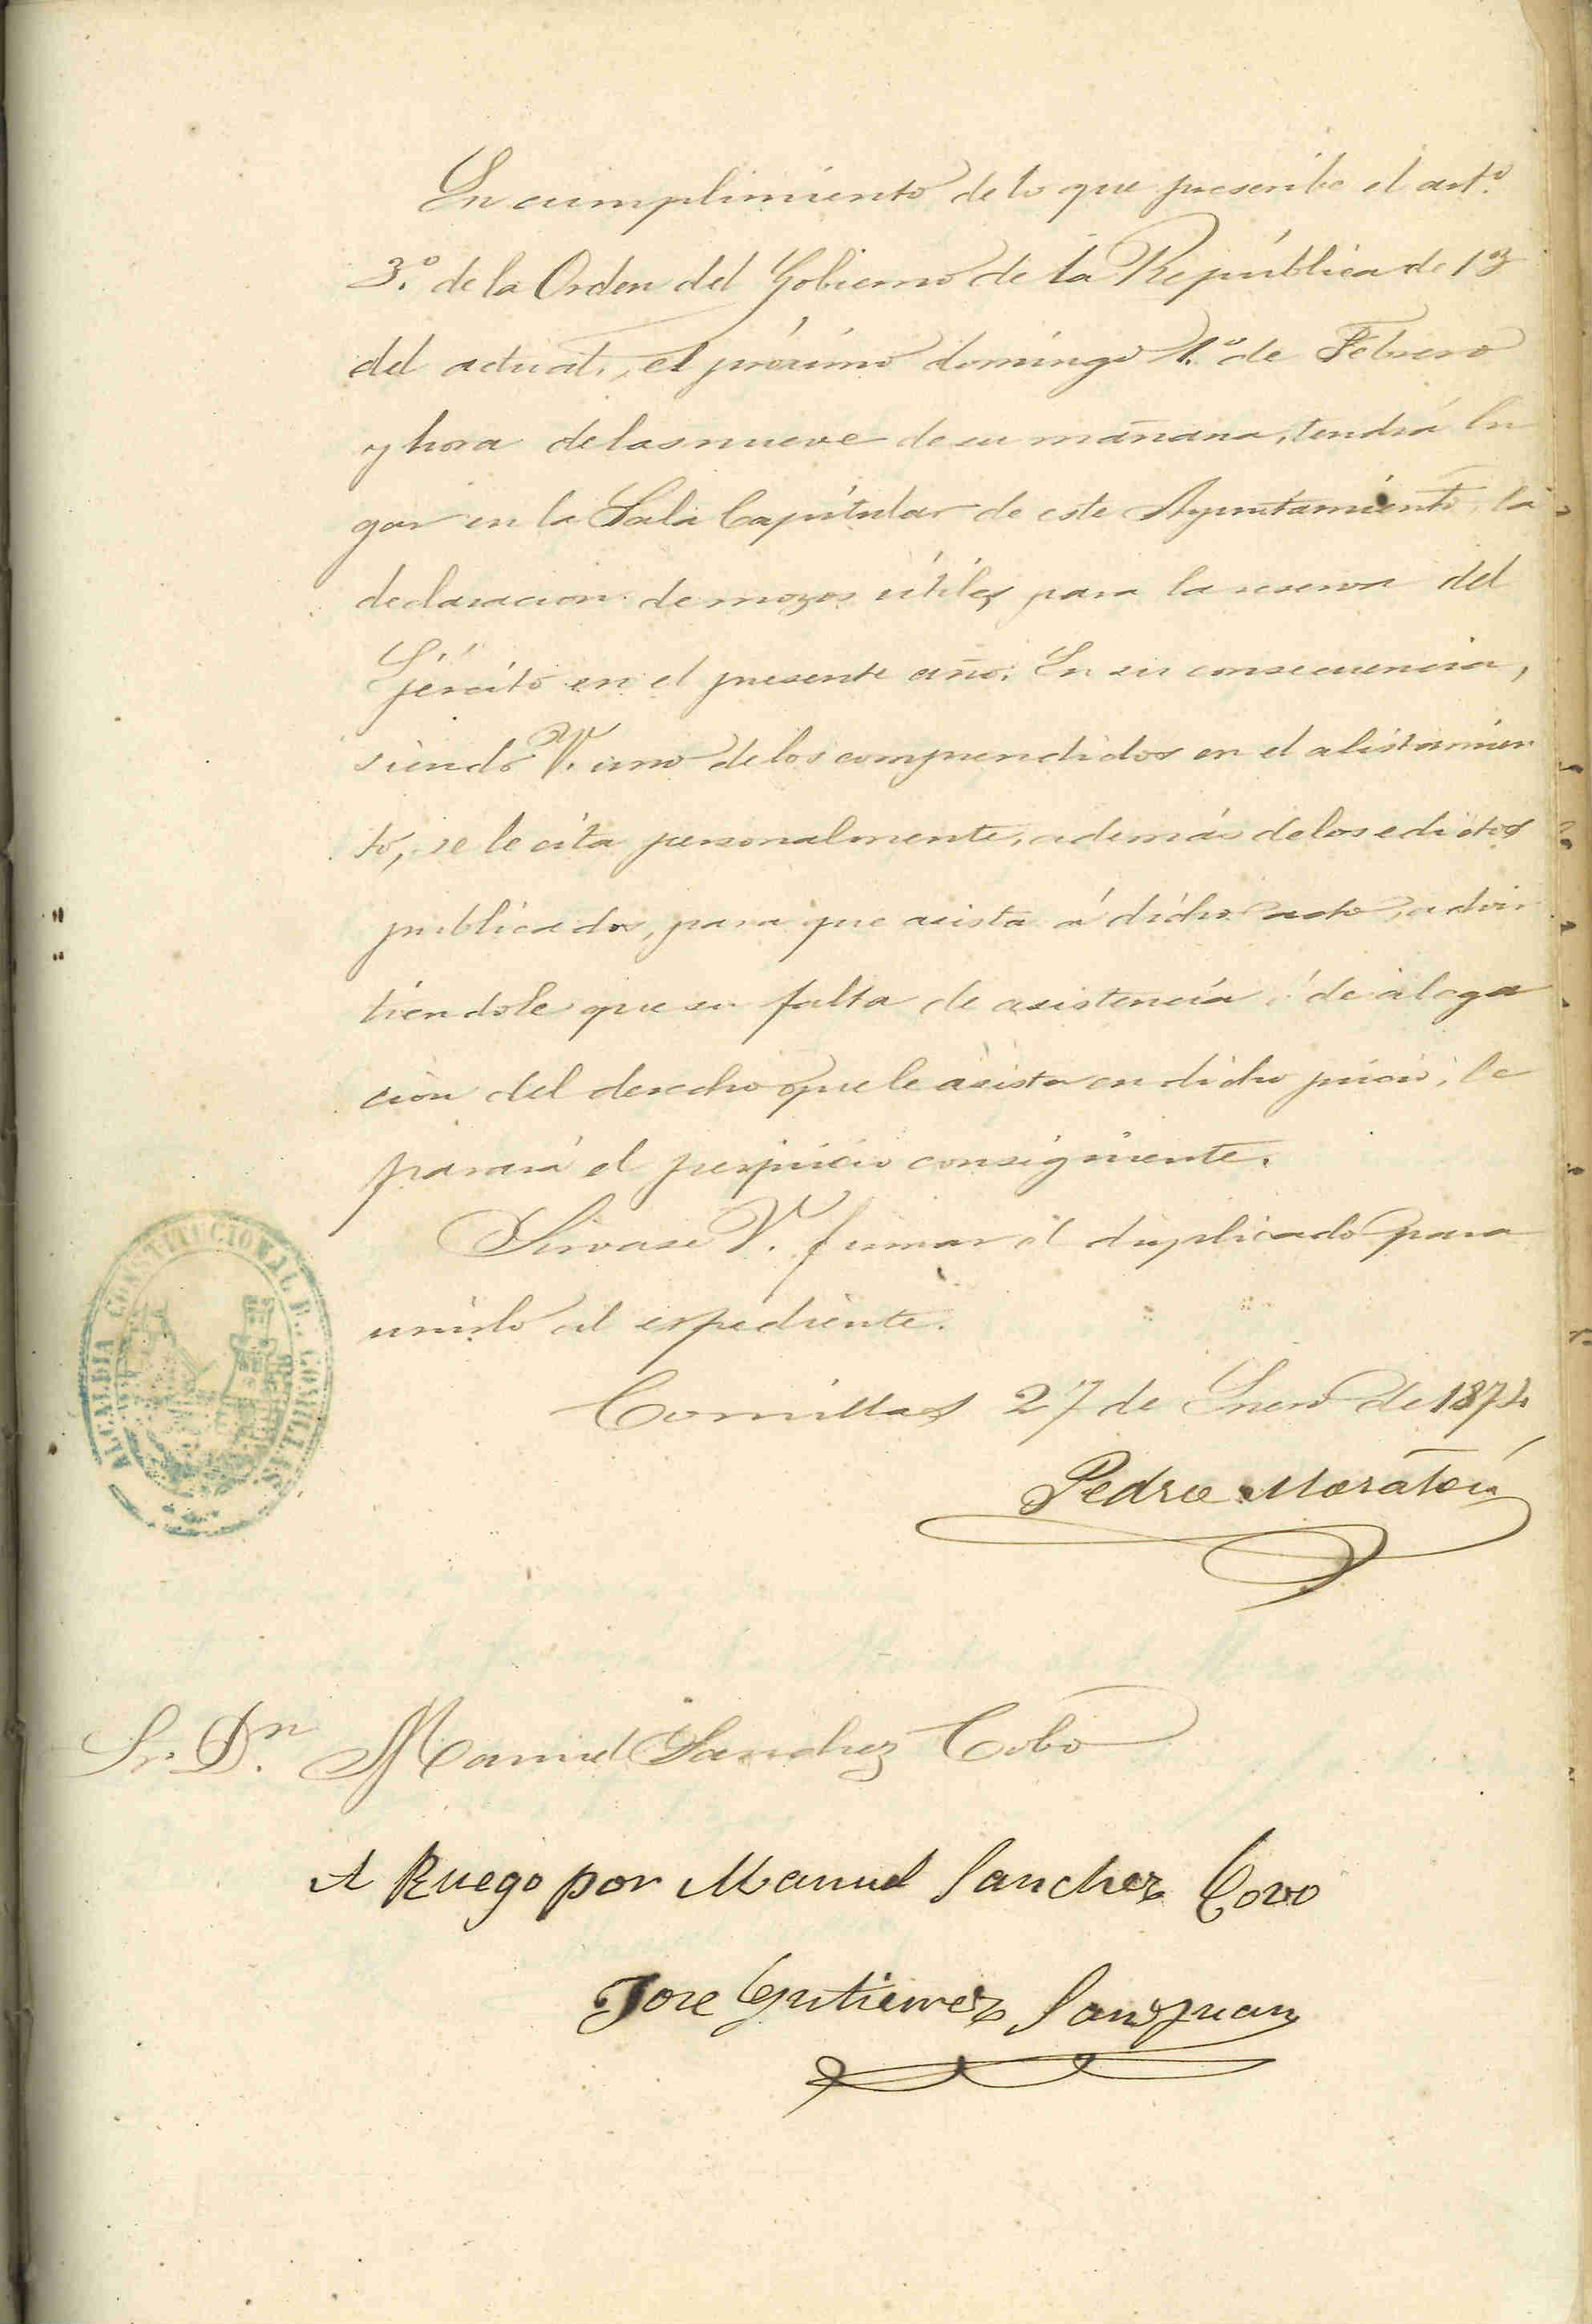 En cumplimiento de lo que prescribe el artº.
3.º de la Orden del Gobierno de la República de 13
del actual, el próximo domingo 1.º de Febrero
y hora de las nueve de su mañana, tendrá lu
gar en la Sala Capitular de este Ayuntamiento, la
declaracion de mozos útiles para la reserva del
Ejército en el presente año. En su consecuencia,
siendo V. uno de los comprendidos en el alistamien
to, se le cita personalmente, además de los edictos
publicados, para que asista á dicho acto, advir
tiendole que su falta de asistencia ó de alega
ción del derecho que le asista en dicho juicio, le
parará el perjuicio consiguiente.
Sirvase V. firmar el duplicado para
unirlo al espediente.
ALCALDIA CONSTITUCIONAL D. COMILLAS
Comillas 27 de Enero de 1874
Pedro Moratón
Sr. D.n Manuel Sanchez Cobo
A Ruego por Manuel Sanchez Covo
Jose Gutierrez Sanjuan